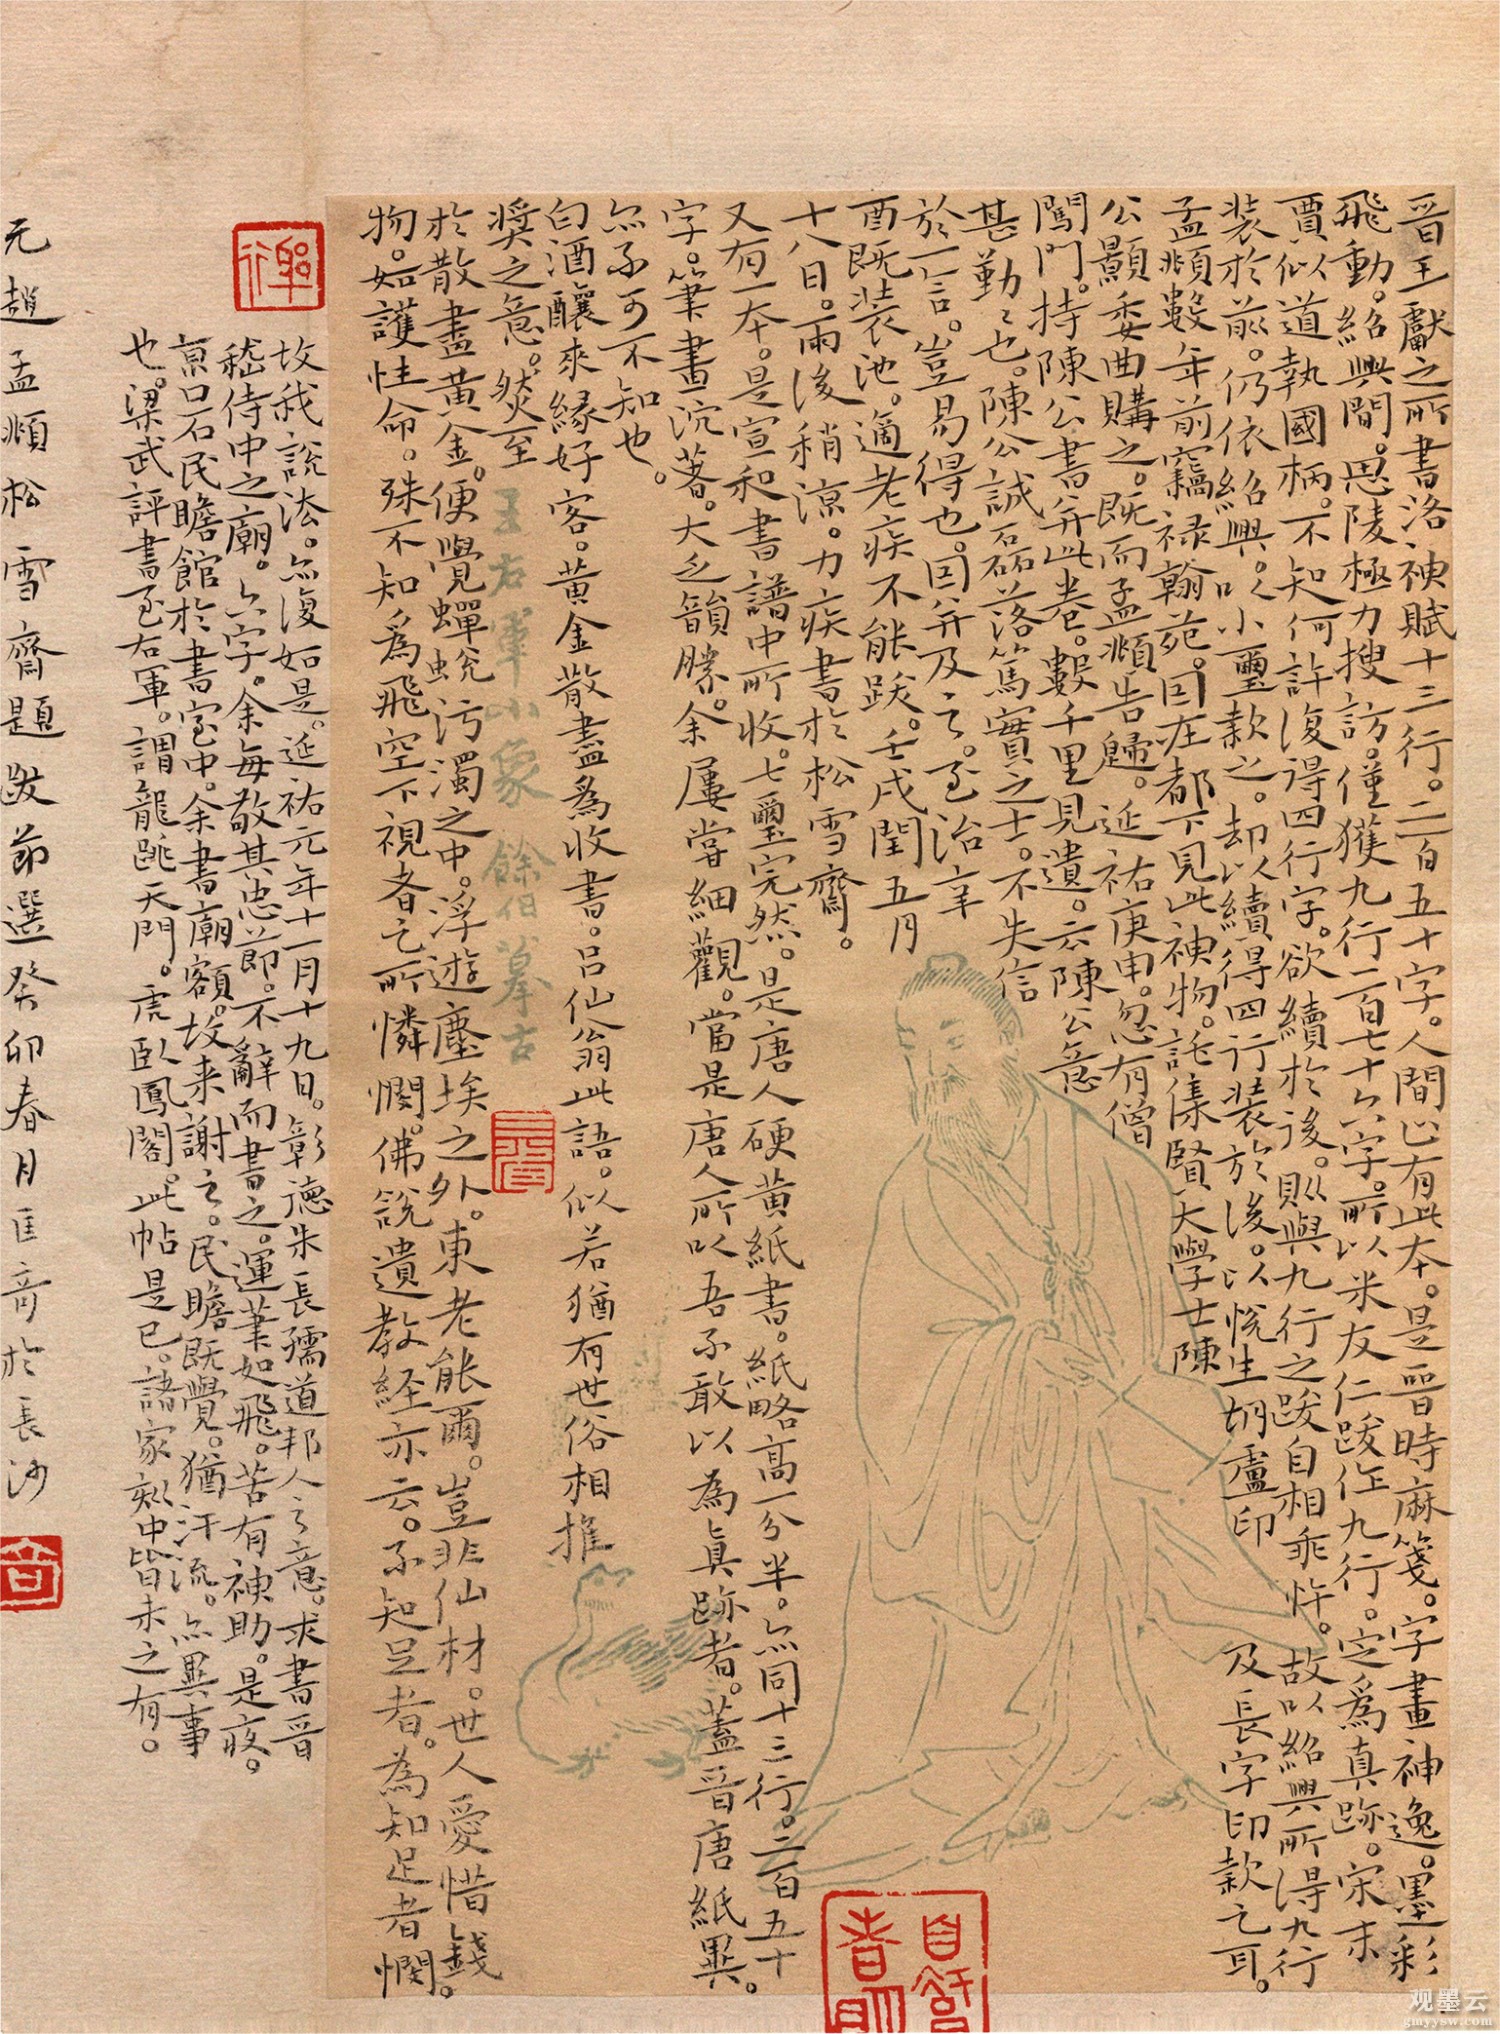 晉王獻之所書洛神賦十三行。二百五十字。人間止有此本。是晉時麻箋。字畫神逸。墨彩
飛動。紹興間。思陵極力搜訪。僅獲九行一百七十六字。所以米友仁跋作九行。定爲真跡。宋末
賈似道執國柄。不知何許復得四行字。欲續於後。則與九行之跋自相乖忤。故以紹興所得九行
裝於前。仍依紹興。以小璽款之。却以續得四行裝於後。以悅生胡盧印
及長字印款之耳。
孟頫數年前竊祿翰苑。因在都下見此神物。託集賢大學士陳
公顥委曲購之。既而孟頫告歸。延祐庚申。忽有僧
闖門。持陳公書并此卷。數千里見遺。云陳公意
甚勤勤也。陳公誠磊落篤實之士。不失信
於一言。豈易得也。因并及之。至治辛
酉既裝池。適老疾不能跋。壬戌閏五月
十八日。雨後稍涼。力疾書於松雪齋。
又有一本。是宣和書譜中所收。七璽完然。是唐人硬黃紙書。紙略高一分半。亦同十三行。二百五十
字。筆畫沉著。大乏韻勝。余屢嘗細觀。當是唐人所以吾不敢以為真跡者。蓋晉唐紙異。
亦不可不知也。
白酒釀來緣好客。黃金散盡為收書。呂仙翁此語。似若猶有世俗相推
奬之意。然至
於散盡黃金。便覺蟬蛻污濁之中。浮遊塵埃之外。東老能爾。豈非仙材。世人愛惜錢
物。如護性命。殊不知爲飛空下視者之所憐憫。佛說遺教経亦云。不知足者。為知足者憫。
王右軍小象 餘伯摹古
故我說法。亦復如是。延祐元年十一月十九日。彰德朱長孺道邦人之意。求書晉
嵇侍中之廟。六字。余每敬其忠節。不辭而書之。運筆如飛。若有神助。是夜。
京口石民瞻館於書室中。余書廟額。故来謝之。民瞻既覺。猶汗流。亦異事
也。梁武評書至右軍。謂龍跳天門。虎臥鳳閣。此帖是已。諸家刻中皆未之有。
元趙孟頫松雪齋題跋節選癸卯春月匡音於長沙
观墨云
gmyysw.com